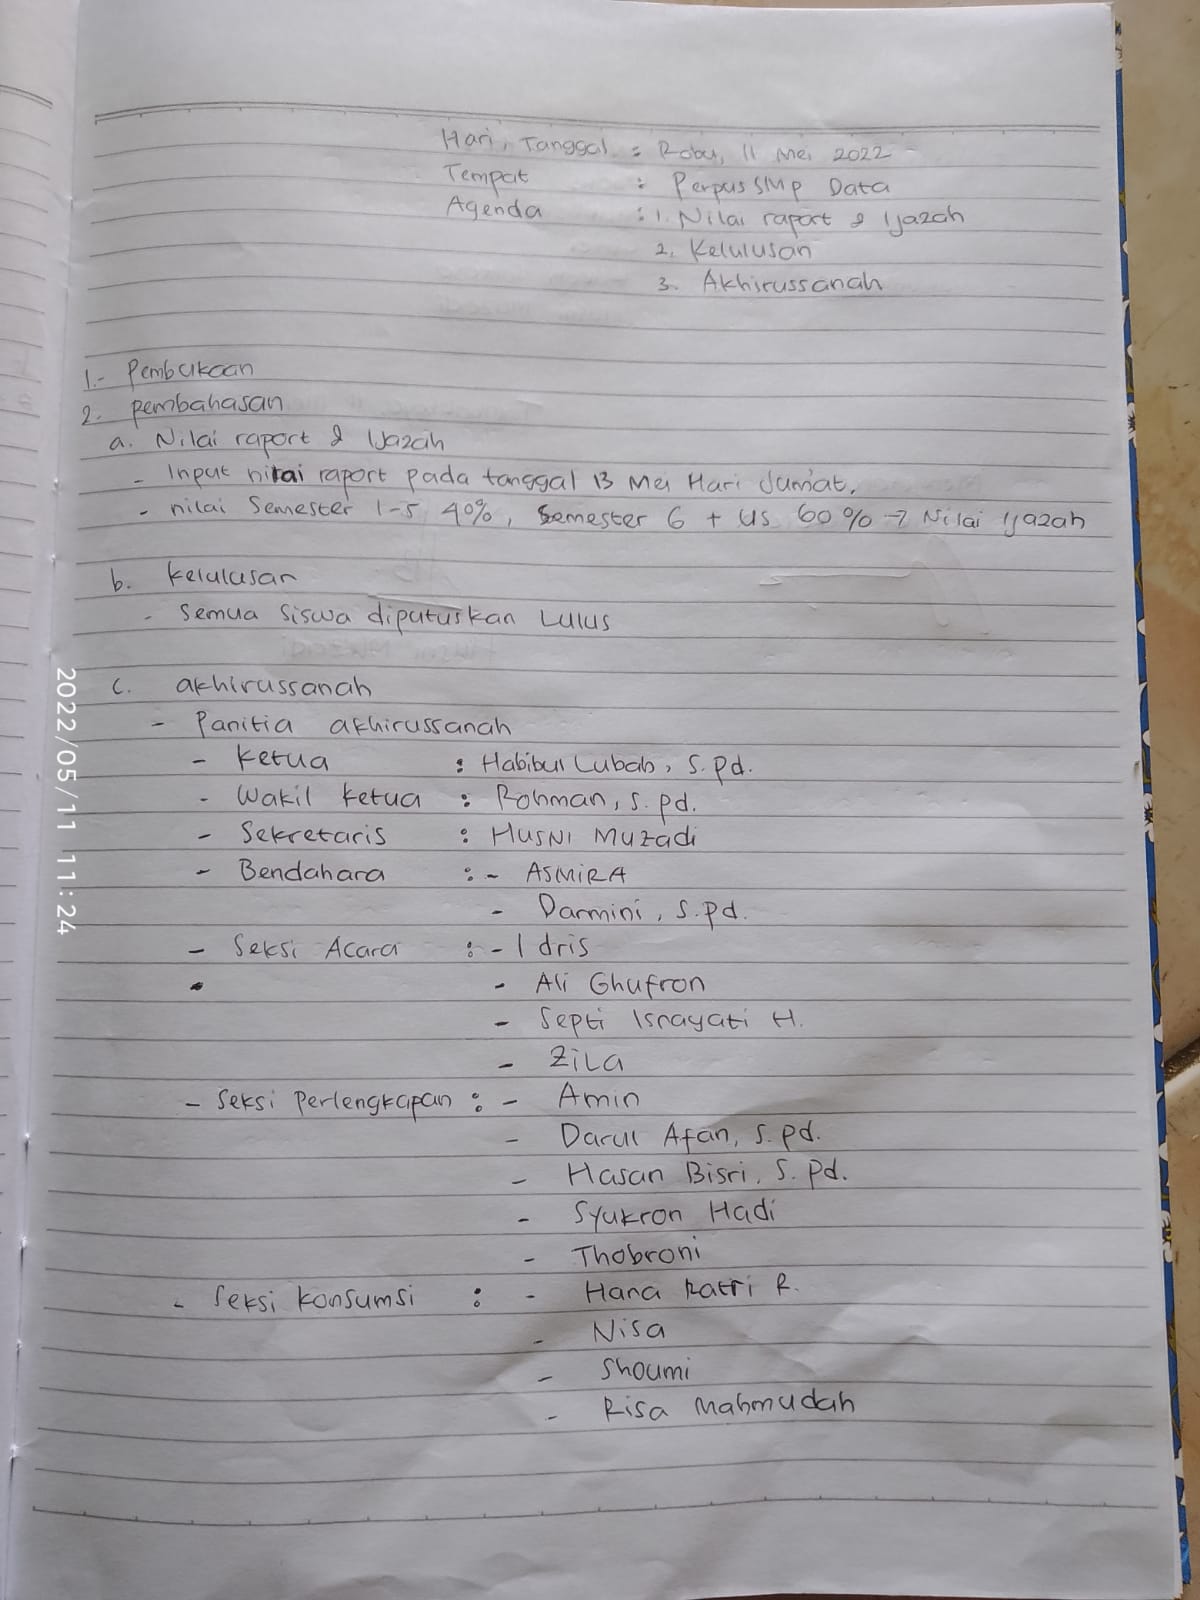 Hari, Tanggal : Rabu, 11 Mei 2022
Tempat : Perpus SMP Data
Agenda : 1. Nilai raport & Ijazah
2. Kelulusan
3. Akhirussanah
1. Pembukaan
2. pembahasan
a. Nilai raport & Ijazah
- Input nilai raport pada tanggal 13 Mei Hari Jum'at.
- nilai Semester 1-5 40%, Semester 6 + US 60% → Nilai Ijazah
b. Kelulusan
- Semua Siswa diputuskan Lulus
c. akhirussanah
- Panitia akhirussanah
- Ketua : Habibul Lubab, S.Pd.
- Wakil Ketua : Rohman, S.Pd.
- Sekretaris : HUSNI MUZadi
- Bendahara : - ASMIRA
- Darmini, S.Pd.
- Seksi Acara : - Idris
- Ali Ghufron
- Septi Isnayati H.
- Zila
- Seksi Perlengkapan : - Amin
- Darul Afan, S.Pd.
- Hasan Bisri, S.Pd.
- Syukron Hadi
- Thobroni
- Seksi Konsumsi : - Hana Ratri R.
- Nisa
- Shoumi
- Risa Mahmudah
2022/05/11 11:24